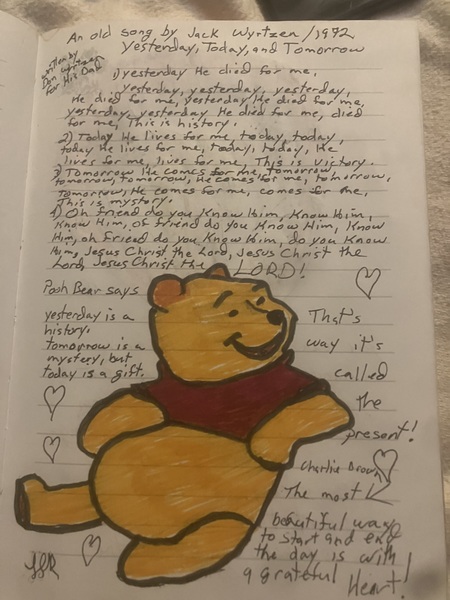 An old song by Jack Wyrtzen/1972
Yesterday, Today, and Tomorrow
written by
Don Wyrtzen
for His Dad
1) yesterday He died for me,
yesterday, yesterday, yesterday,
He died for me, yesterday He died for me,
yesterday, yesterday He died for me, died
for me, This is history.
2) Today He lives for me, today, today,
today He lives for me, today, today, He
lives for me, lives for me, This is victory.
3) Tomorrow He comes for me, Tomorrow,
tomorrow, tomorrow, He comes for me, tomorrow,
Tomorrow, He comes for me, comes for me,
This is mystery.
4) Oh friend do you Know Him, Know Him,
Know Him, of friend do you Know Him, Know
Him, oh friend do you Know Him, do you Know
Him, Jesus Christ the Lord, Jesus Christ the
Lord, Jesus Christ the LORD!
Pooh Bear says
yesterday is a
history.
tomorrow is a
mystery, but
today is a gift.
That's
way it's
called
the
present!
Charlie Brown
The most
beautiful way
to start and end
the day is with
a grateful Heart!